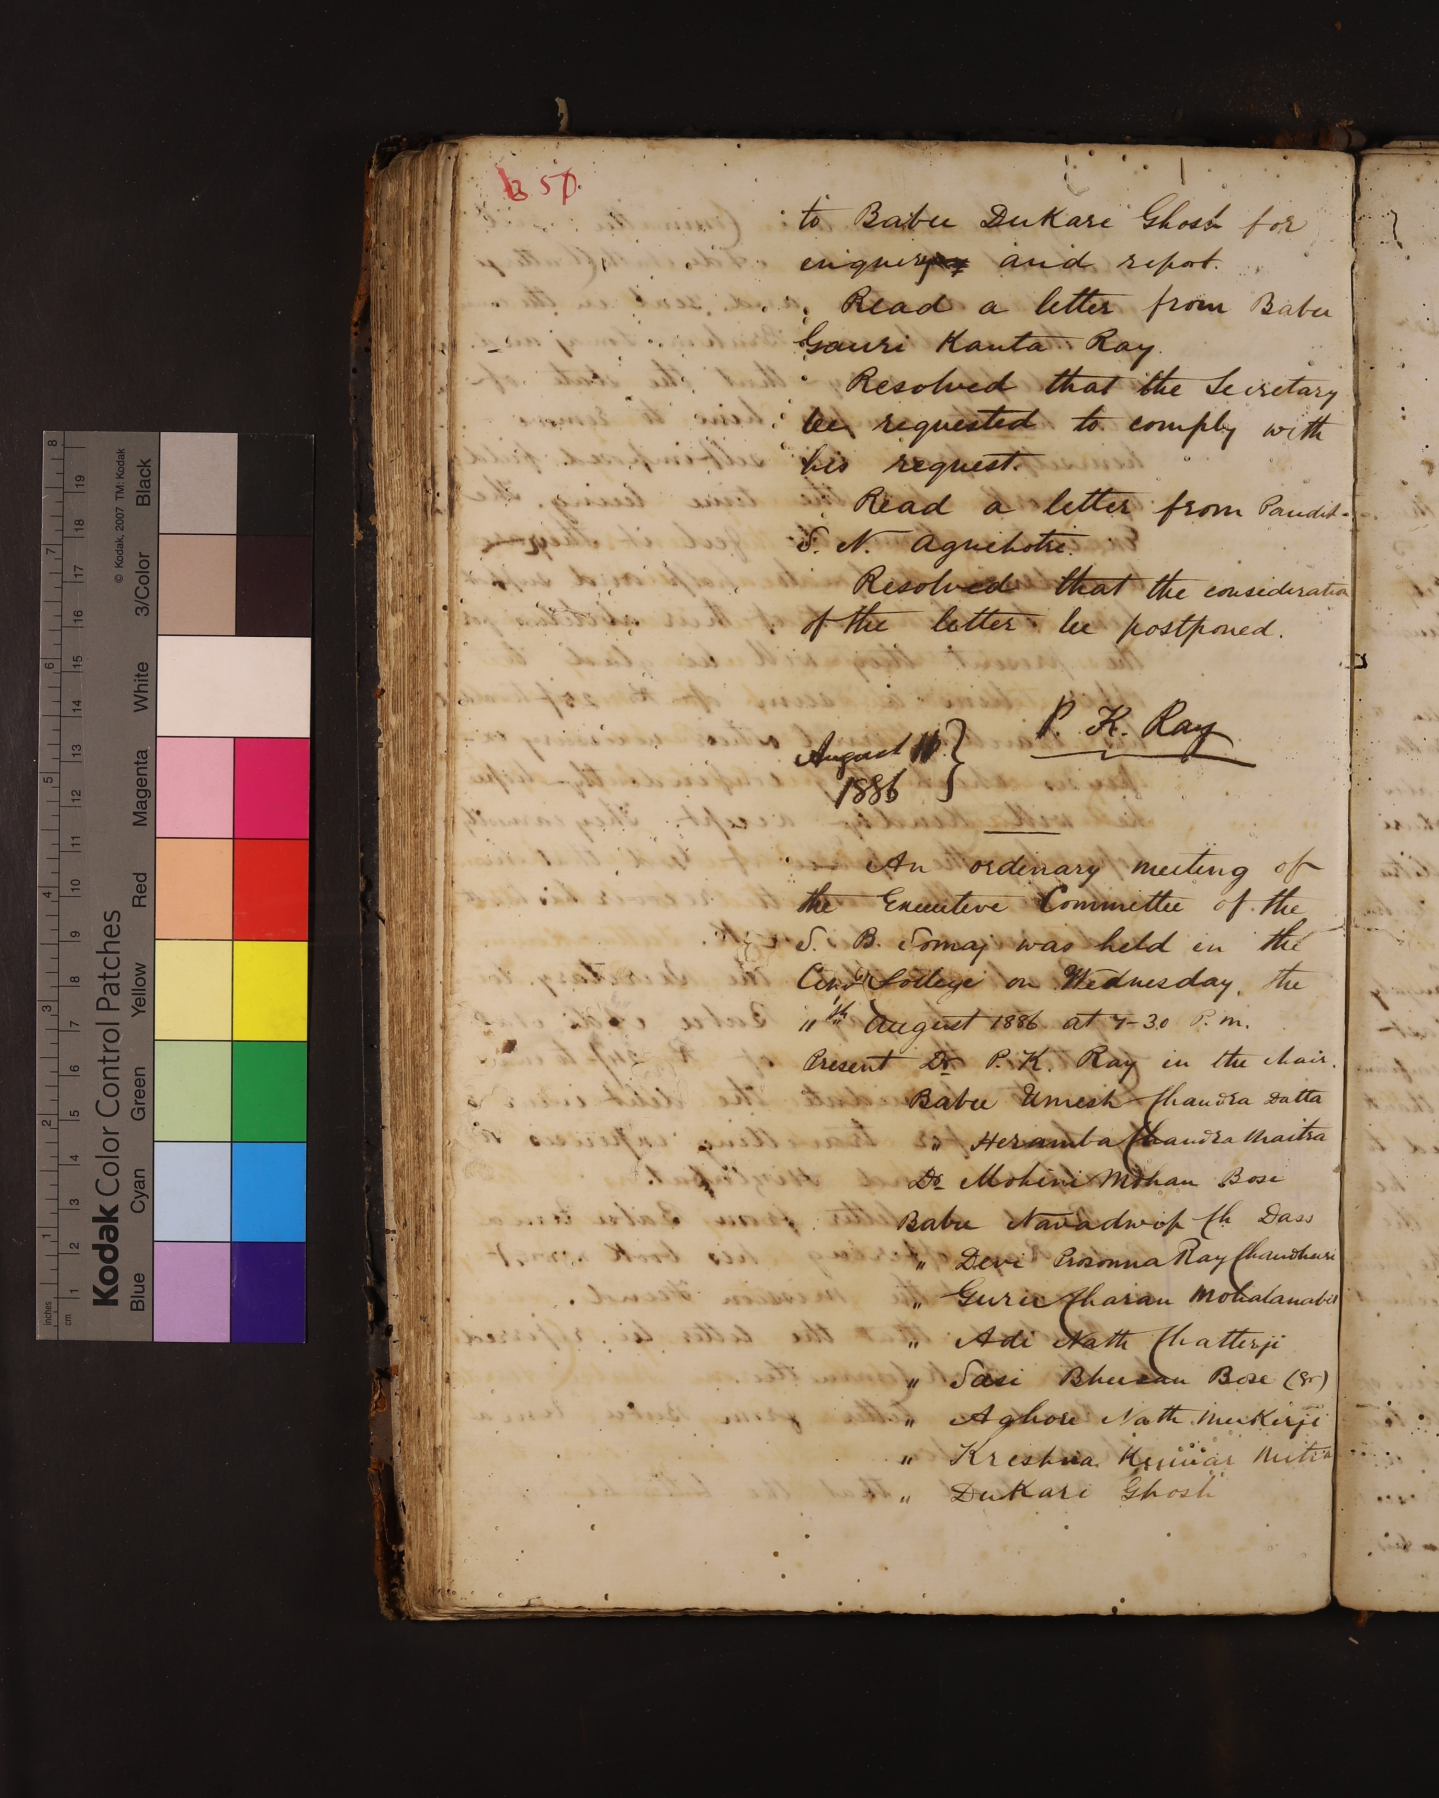 250
to Babu Dukari Ghosh for
enquiry and report.
Read a letter from Babu
Gauri Kanta Ray
Resolved that the Secretary
be requested to comply with
his request.
Read a letter from Pandit
S. N. Agnihotri.
Resolved that the consideration
of the letter be postponed.
P. K. Ray
August 11
1886
An ordinary meeting of
the Executive Committee of the
S. B. Somaj was held in the
College on Wednesday, the
11th August 1886 at 7-30 P.m.
Present Dr P. K. Ray in the chair.
Babu Umesh Chandra Datta
" Heramba Chandra Maitra
Dr Mohini Mohan Bose
Babu Navadwip Ch Dass
" Devi Prosonna Ray Chaudhuri
" Guru Charan Mohalanabis
" Adi Nath Chatterji
" Sasi Bhusan Bose (Sr)
" Aghore Nath Mukerji
" Krishna Kumar Mitra
" Dukari Ghosh
inches
cm
1 2 3 4 5 6 7 8
1 2 3 4 5 6 7 8 9 10 11 12 13 14 15 16 17 18 19
Kodak Color Control Patches
© Kodak, 2007 TM: Kodak
Blue Cyan Green Yellow Red Magenta White 3/Color Black